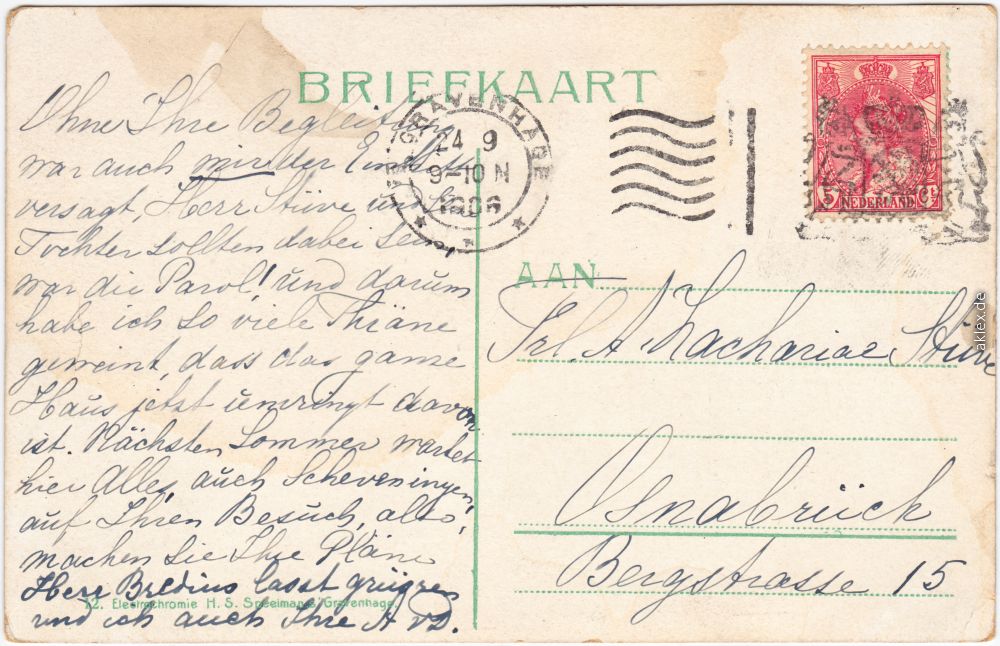 BRIEFKAART
Ohne Ihre Begleitung
war auch mir der Einlass
versagt, Herr Stüve und
Tochter sollten dabei sein
war die Parol! und darum
habe ich so viele Thräne
geweint, dass das ganze
Haus jetzt umringt davon
ist. Nächsten Sommer wartet
hier Alles, auch Scheveningen,
auf Ihren Besuch, also,
machen Sie Ihre Pläne
Herr Bredius lasst grüssen
und ich auch Ihre A v D.
12. Electrochromie H. S. Speelman's Gravenhage.
'S GRAVENHAGE
24 9
9-10 N
1906
5 Ct
NEDERLAND
AAN
Frl. A. Zachariae Stüve
Osnabrück
Bergstrasse 15
aklex.de